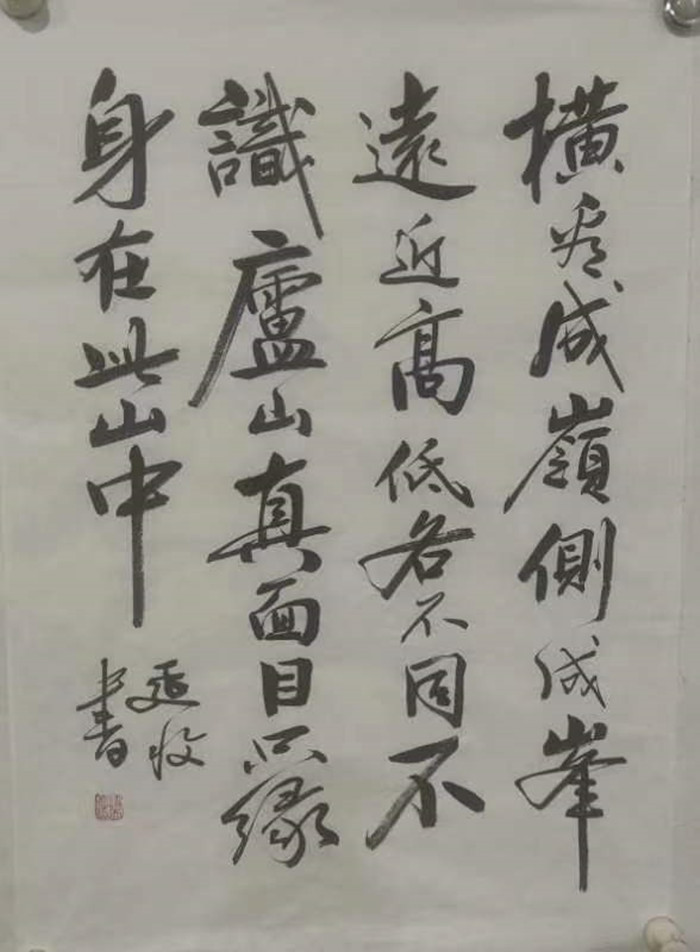 橫看成嶺側成峯
遠近高低各不同不
識廬山真面目只緣
身在此山中
書